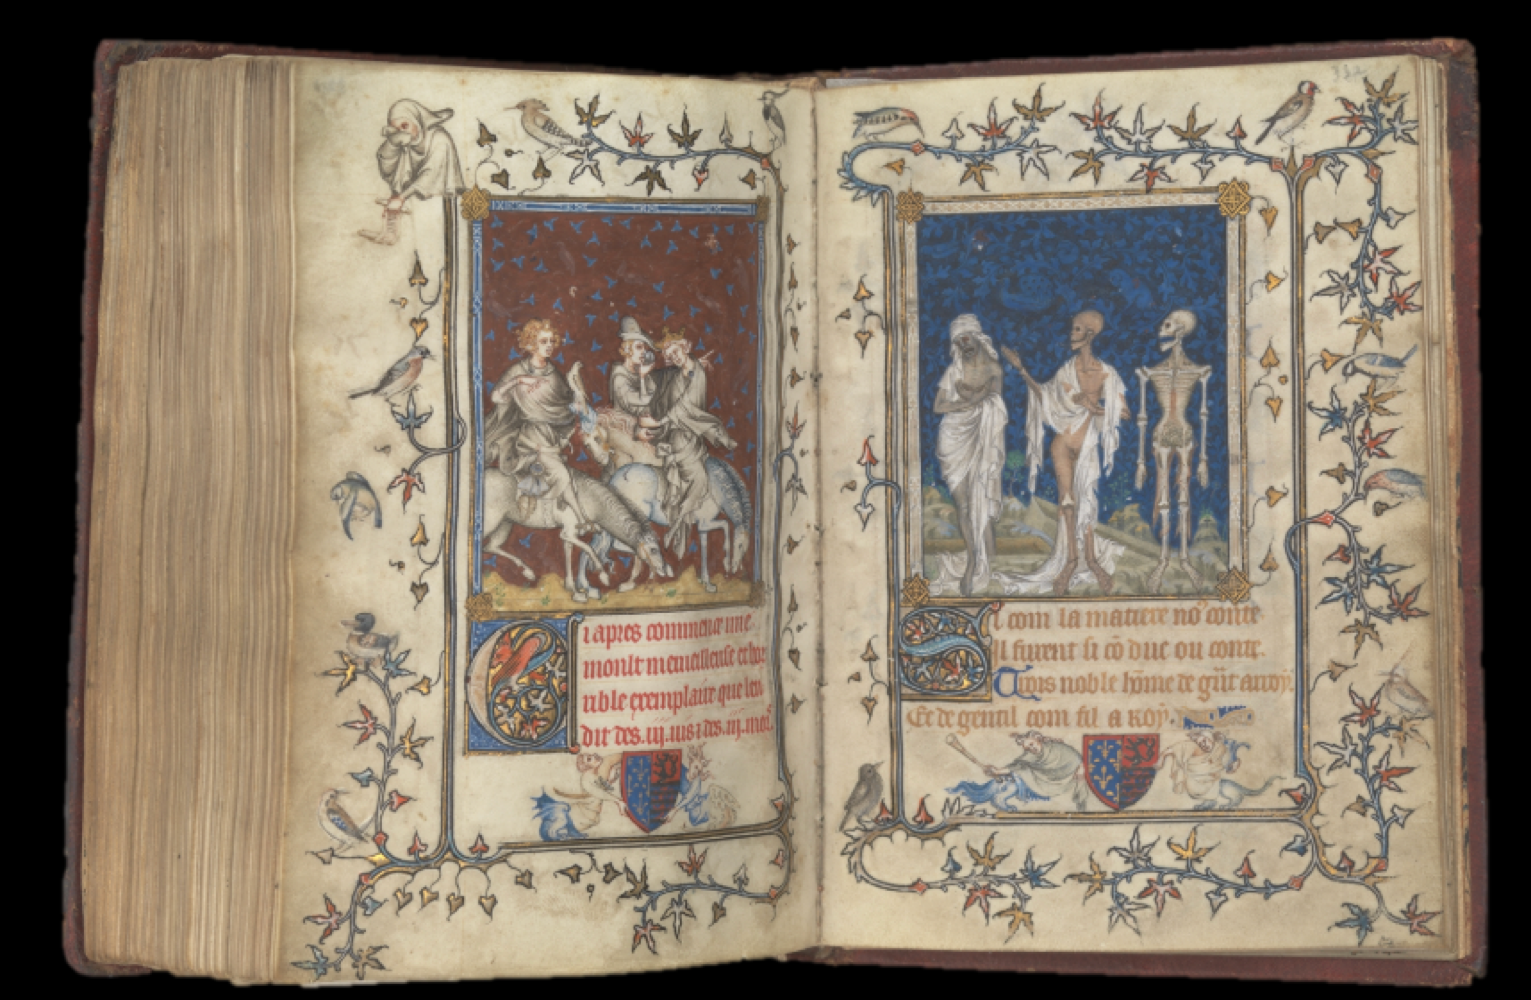 Ci apres commence une
moult merueilleuse et hor
rible exemplaire que len
dit des .iij. uis ⁊ des .iij. mors
Si com la matiere no⁹ conte
Il furent si cō duc ou conte.
Trois noble hōme de gūt arroy.
Et de gentil com fil a roy.